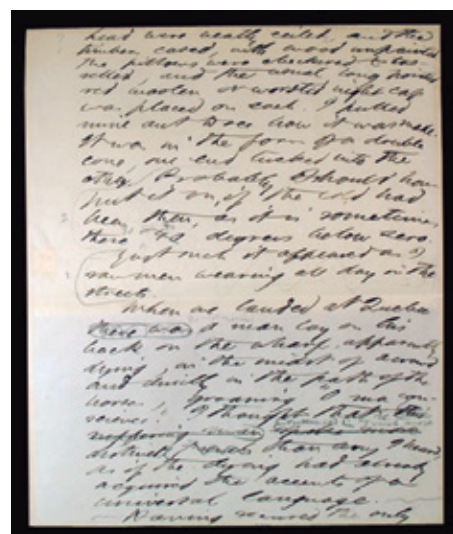 head were neatly ceiled, and the
timbers cased, with wood unpainted
the pillows were checkered & tas-
selled, and the usual long pointed
red woolen or worsted night cap
was placed on each. I pulled
mine out to see how it was made.
It was in the form of a double
cone, one end tucked into the
other. Probably I should have
put it on, if the cold had
been then, as it is sometimes
there, 42 degrees below zero.
Just such it appeared as I
saw men wearing all day in the
streets.
When we landed at Quebec
there was a man lay on his
back on the wharf, apparently
dying in the midst of a crowd
and directly in the path of the
horses, groaning "O ma con-
science! I thought that
distinctly than any I heard,
as if the dying had already
acquired the accents of a
universal language.
Having secured the only